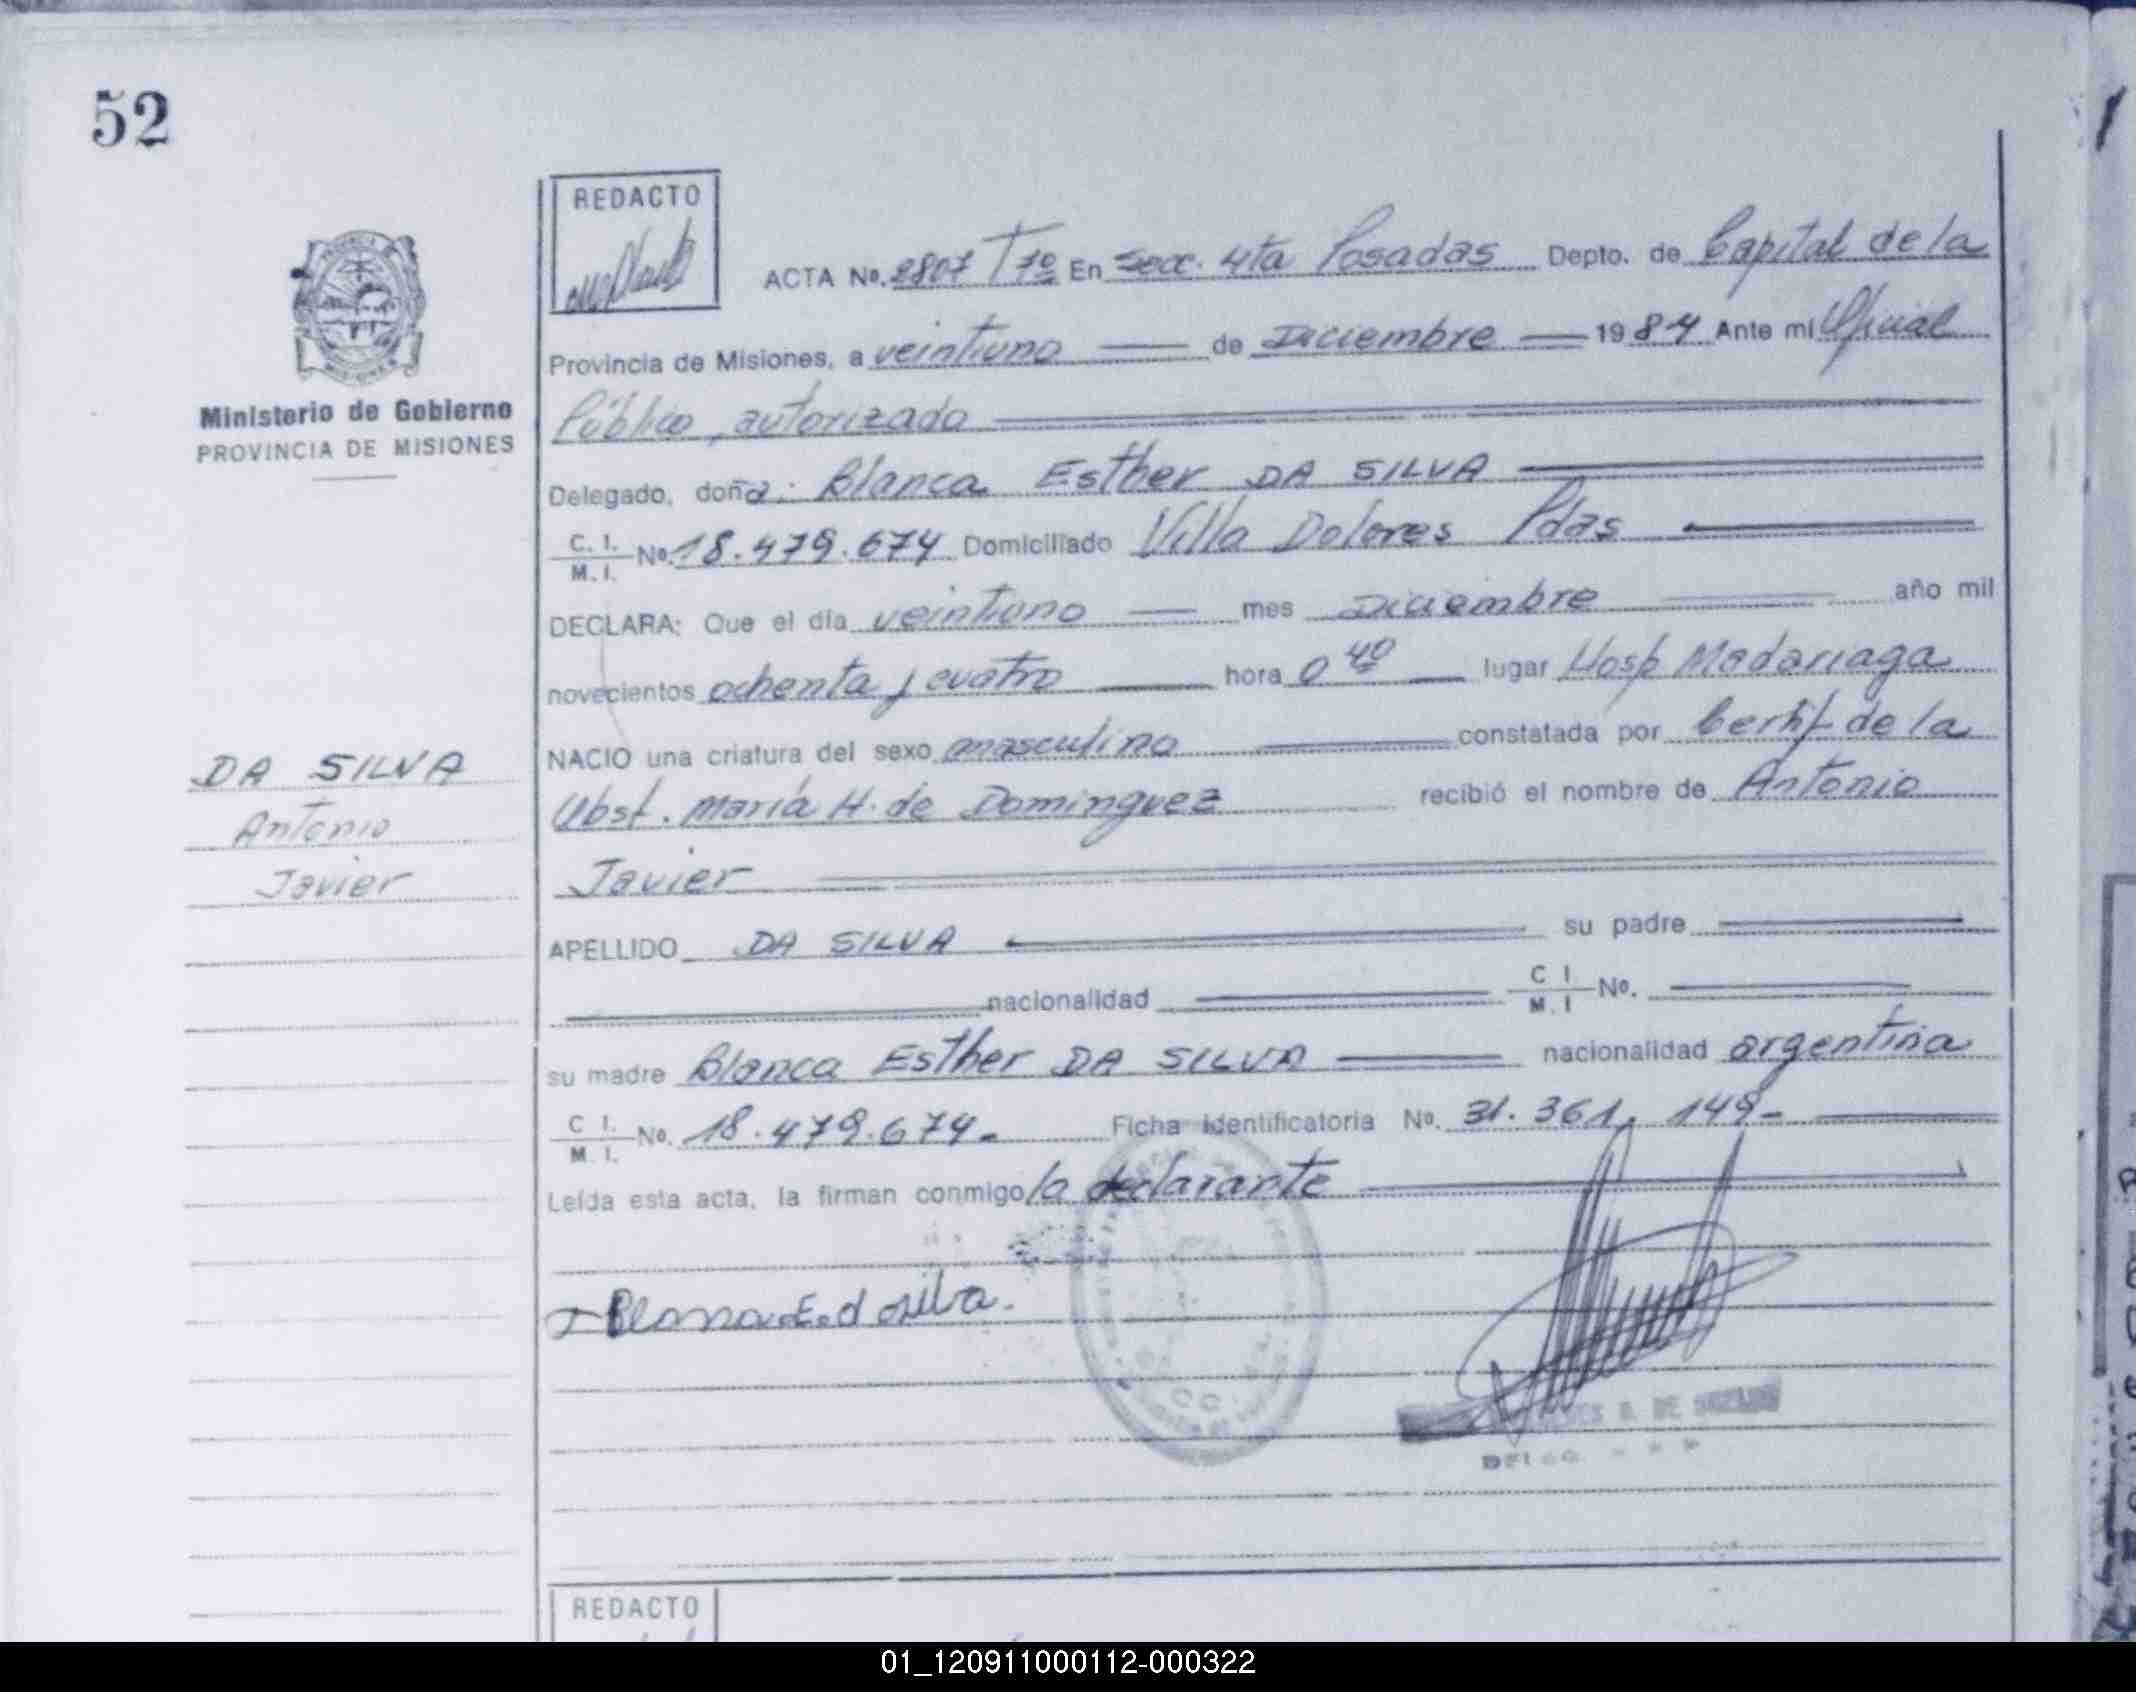 52
REDACTO
ACTA Nº. 2807 Tº 7º En Secc. 4ta Posadas Depto. de Capital de la
Provincia de Misiones, a veintiuno de Diciembre 1984 Ante mi Oficial
Ministerio de Gobierno
PROVINCIA DE MISIONES
Público autorizado
Delegado, doña: Blanca Esther DA SILVA
C. I.
M. I. Nº. 18.479.674 Domiciliado Villa Dolores Pdas
DECLARA: Que el día veintiuno mes Diciembre año mil
novecientos ochenta y cuatro hora 0 40 lugar Hosp Madariaga
NACIO una criatura del sexo masculino constatada por Certif de la
DA SILVA
Antonio
Javier
Obst. María H. de Dominguez recibió el nombre de Antonio
Javier
APELLIDO DA SILVA su padre
nacionalidad C I
M. I Nº.
su madre Blanca Esther DA SILVA nacionalidad argentina
C I.
M. I. Nº. 18.479.674.- Ficha identificatoria Nº. 31.361.149-
Leída esta acta, la firman conmigo la declarante
Blanca.E.d silva.
REDACTO
01_120911000112-000322